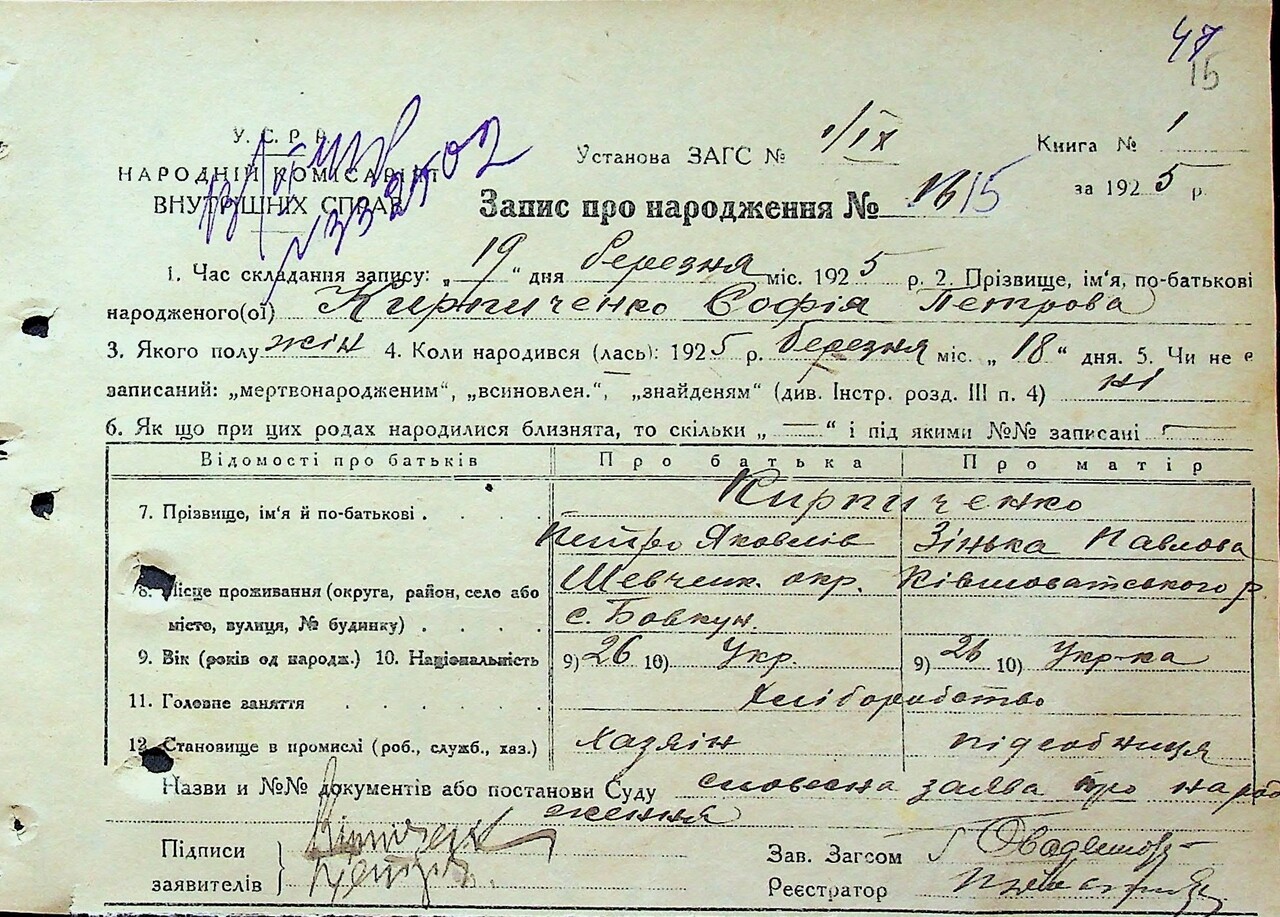 47
15
У. С. Р. Р.
НАРОДНІЙ КОМІСАРІЯТ
ВНУТРІШНІХ СПРАВ
Установа ЗАГС № 1/IX
Книга № 1
за 1925 р.
Запис про народження № 16/5
1. Час складання запису: „19“ дня березня міс. 1925 р. 2. Прізвище, ім'я, по-батькові
народженого(ої) Кирпиченко Софія Петрова
3. Якого полу жін 4. Коли народився (лась): 1925 р. березня міс. „18“ дня. 5. Чи не є
записаний: „мертвонародженим“, „всиновлен.“, „знайденям“ (див. Інстр. розд. III п. 4) ні
6. Як що при цих родах народилися близнята, то скільки „—“ і під якими №№ записані —
Відомості про батьків Про батька Про матір
7. Прізвище, ім'я й по-батькові . . . . Кирпиченко
Петро Яковлів Зінька Павлова
8. Місце проживання (округа, район, село або Шевченк. окр. Ківшоватського р.
місто, вулиця, № будинку) . . . . с. Бовкун.
9. Вік (років од народж.) 10. Національність 9) 26 10) Укр. 9) 26 10) Укр-ка
11. Головне заняття . . . . . . Хліборобство
12. Становище в промислі (роб., служб., хаз.) хазяїн підсобниця
Назви и №№ документів або постанови Суду словесна заява про народ
ження
Підписи
заявителів
Зав. Загсом
Реєстратор